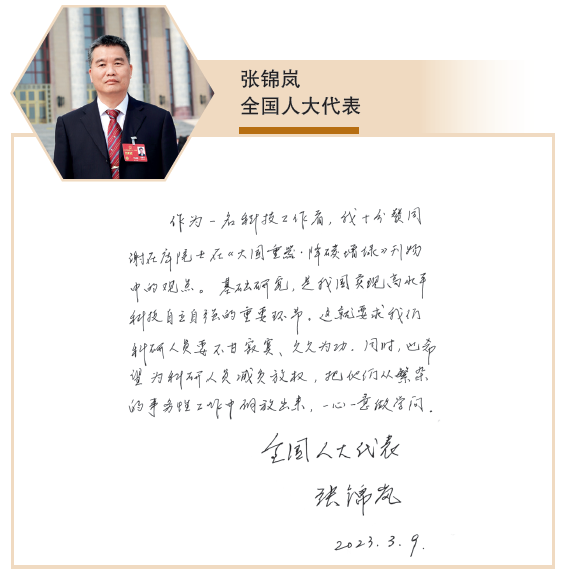 张锦岚
全国人大代表
作为一名科技工作者，我十分赞同
谢在库院士在《大国重器·降碳增绿》刊物
中的观点。基础研究，是我国实现高水平
科技自立自强的重要环节。这就要求我们
科研人员要不甘寂寞、久久为功。同时，也希
望为科研人员减负放权，把他们从繁杂
的事务性工作中解放出来，一心一意做学问。
全国人大代表
张锦岚
2023.3.9.